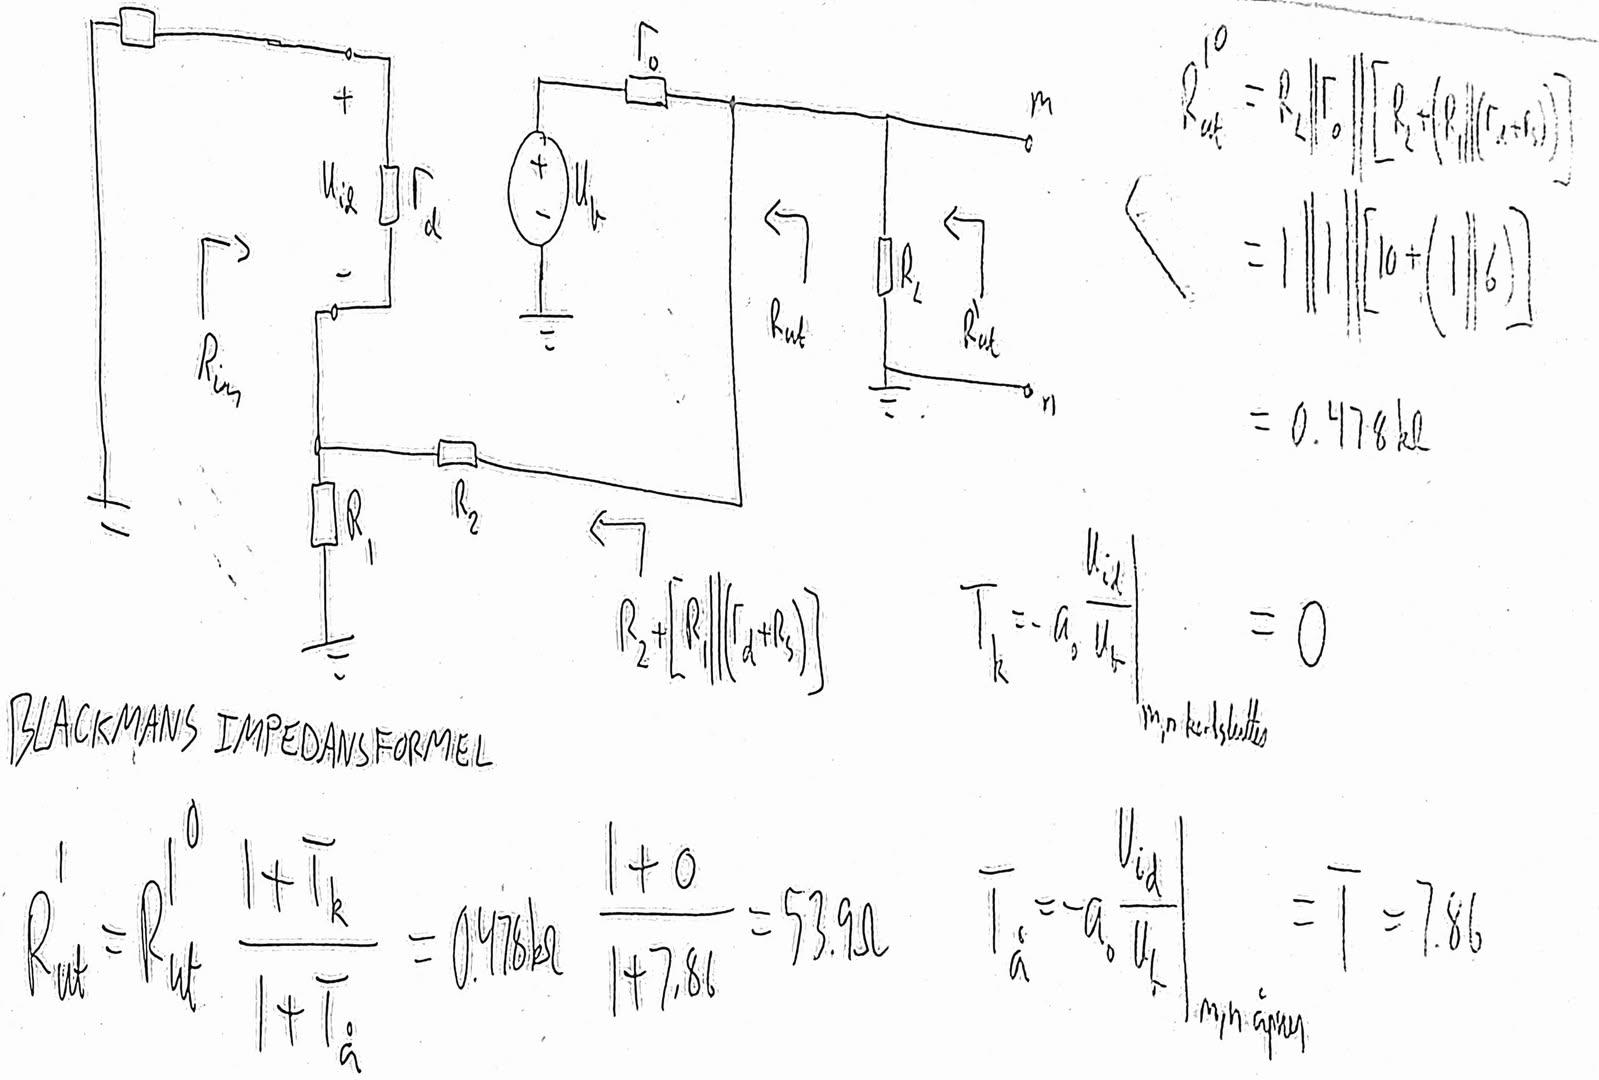 r₀
m
+
U_id
r_d
-
+
-
U_t
R_in
R_ut
R_L
R'_ut
n
R₂
R₁
R₂+[R₁||(r_d+R_s)]
R'⁰_ut = R_L||r₀||[R₂+(R₁||(r_d+r_s))]
= 1||1||[10+(1||6)]
= 0.478kΩ
T_k = -a₀ U_id/U_t | m,n kortslutes = 0
BLACKMANS IMPEDANSFORMEL
R'_ut = R'⁰_ut (1+T_k)/(1+T_å) = 0.478kΩ (1+0)/(1+7.86) = 53.9Ω
T_å = -a₀ U_id/U_t | m,n åpnes = T = 7.86